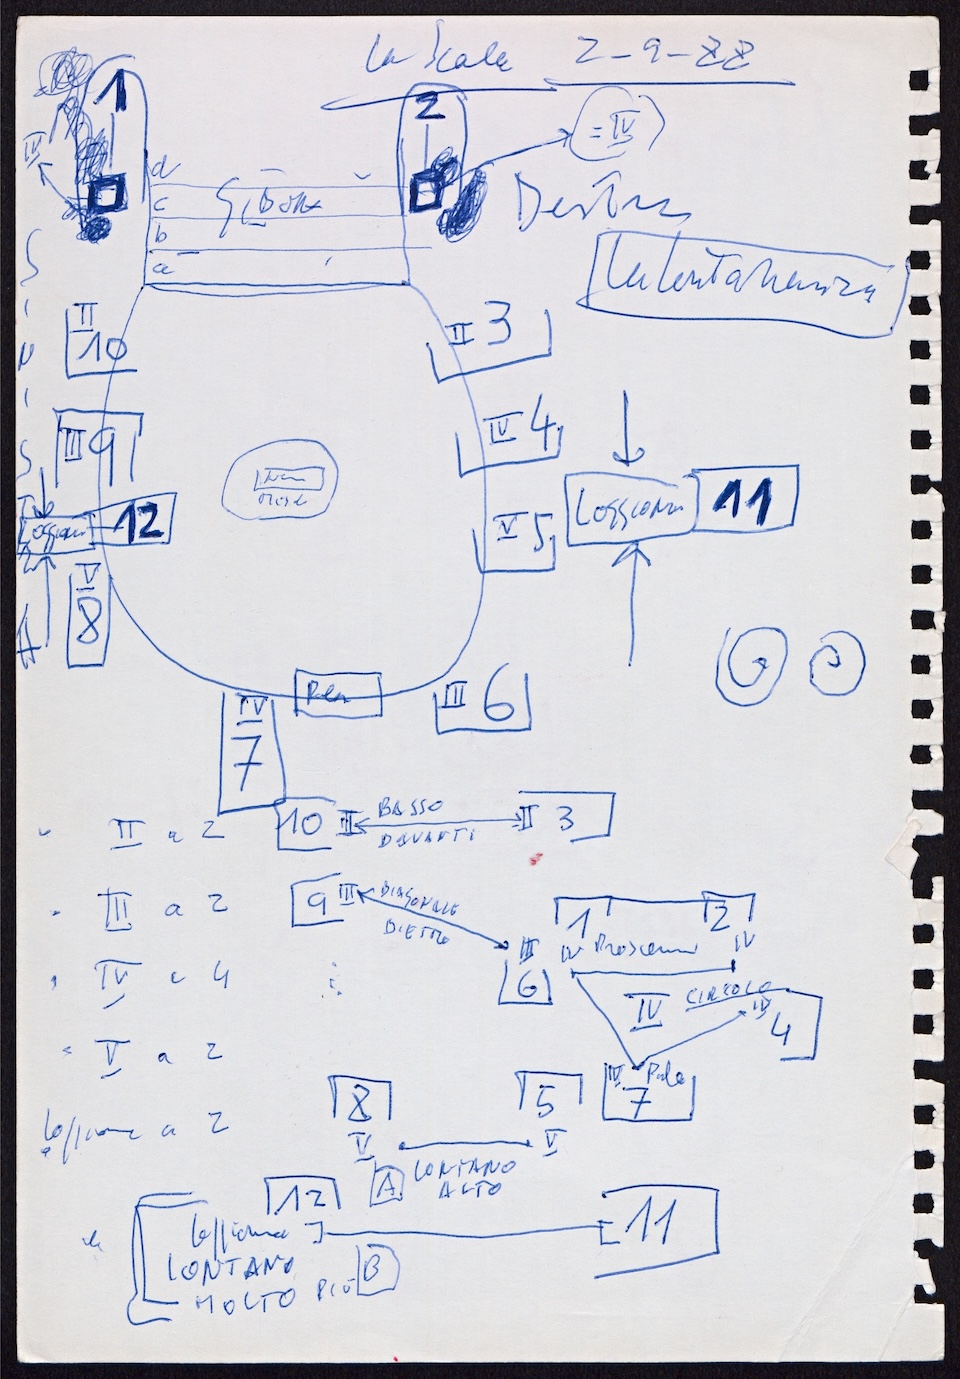 La Scala 2-9-88
1
2
IV
(= IV)
d
c
b
a
Destra
SINISTRA
La lontananza
II
10
II 3
III 9
IV 4
Loggione
12
V 5
Loggione 11
V
8
IV
7
III 6
II a 2
10 II BASSO
DAVANTI II 3
III a 2
9 III DIAGONALE
DIETRO
III
6
1 2
IV Proscenio IV
IV a 4
IV CIRCOLO
IV
4
IV Palco
7
V a 2
8 5
V V
Loggione a 2
A LONTANO
ALTO
12
Loggione
11
LONTANO
MOLTO PIÙ B